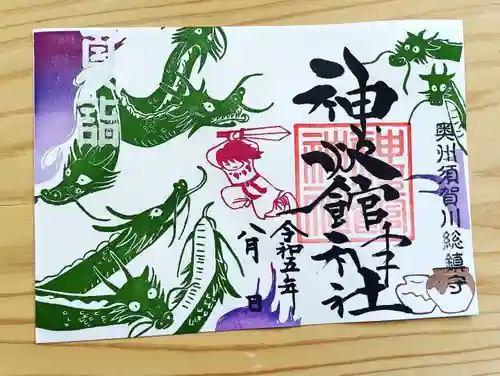 奥州須賀川総鎮守
神炊館神社
令和五年
八月 日
夏詣